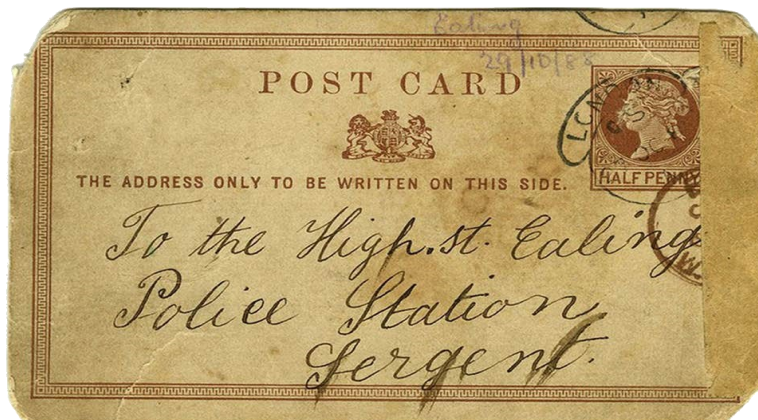 Ealing
29/10/88
POST CARD
LONDON
THE ADDRESS ONLY TO BE WRITTEN ON THIS SIDE.
HALF PENNY
To the High.st. Ealing
Police Station
Sergent.